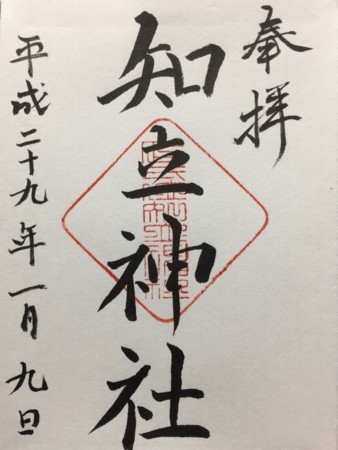 奉拝
知立神社
平成二十九年一月九日